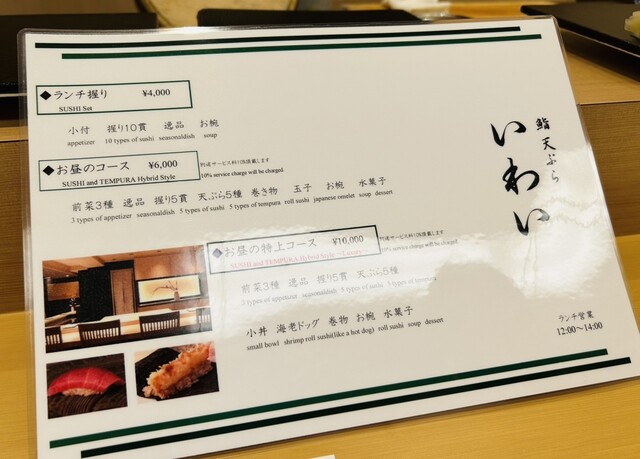 ◆ランチ握り ¥4,000
SUSHI Set
小付 握り10貫 逸品 お椀
appetizer 10 types of sushi seasonaldish soup
◆お昼のコース ¥6,000
SUSHI and TEMPURA Hybrid Style
別途サービス料10%頂戴します
10% service charge will be charged.
前菜3種 逸品 握り5貫 天ぷら5種 巻き物 玉子 お椀 水菓子
3 types of appetizer seasonaldish 5 types of sushi 5 types of tempura roll sushi japanese omelet soup dessert
◆お昼の特上コース ¥10,000
SUSHI and TEMPURA Hybrid Style ~Luxury~
別途サービス料10%頂戴します
10% service charge will be charged.
前菜3種 逸品 握り5貫 天ぷら5種
3 types of appetizer seasonaldish 5 types of sushi 5 types of tempura
小丼 海老ドッグ 巻物 お椀 水菓子
small bowl shrimp roll sushi(like a hot dog) roll sushi soup dessert
鮨 天ぷら
いわい
ランチ営業
12:00～14:00